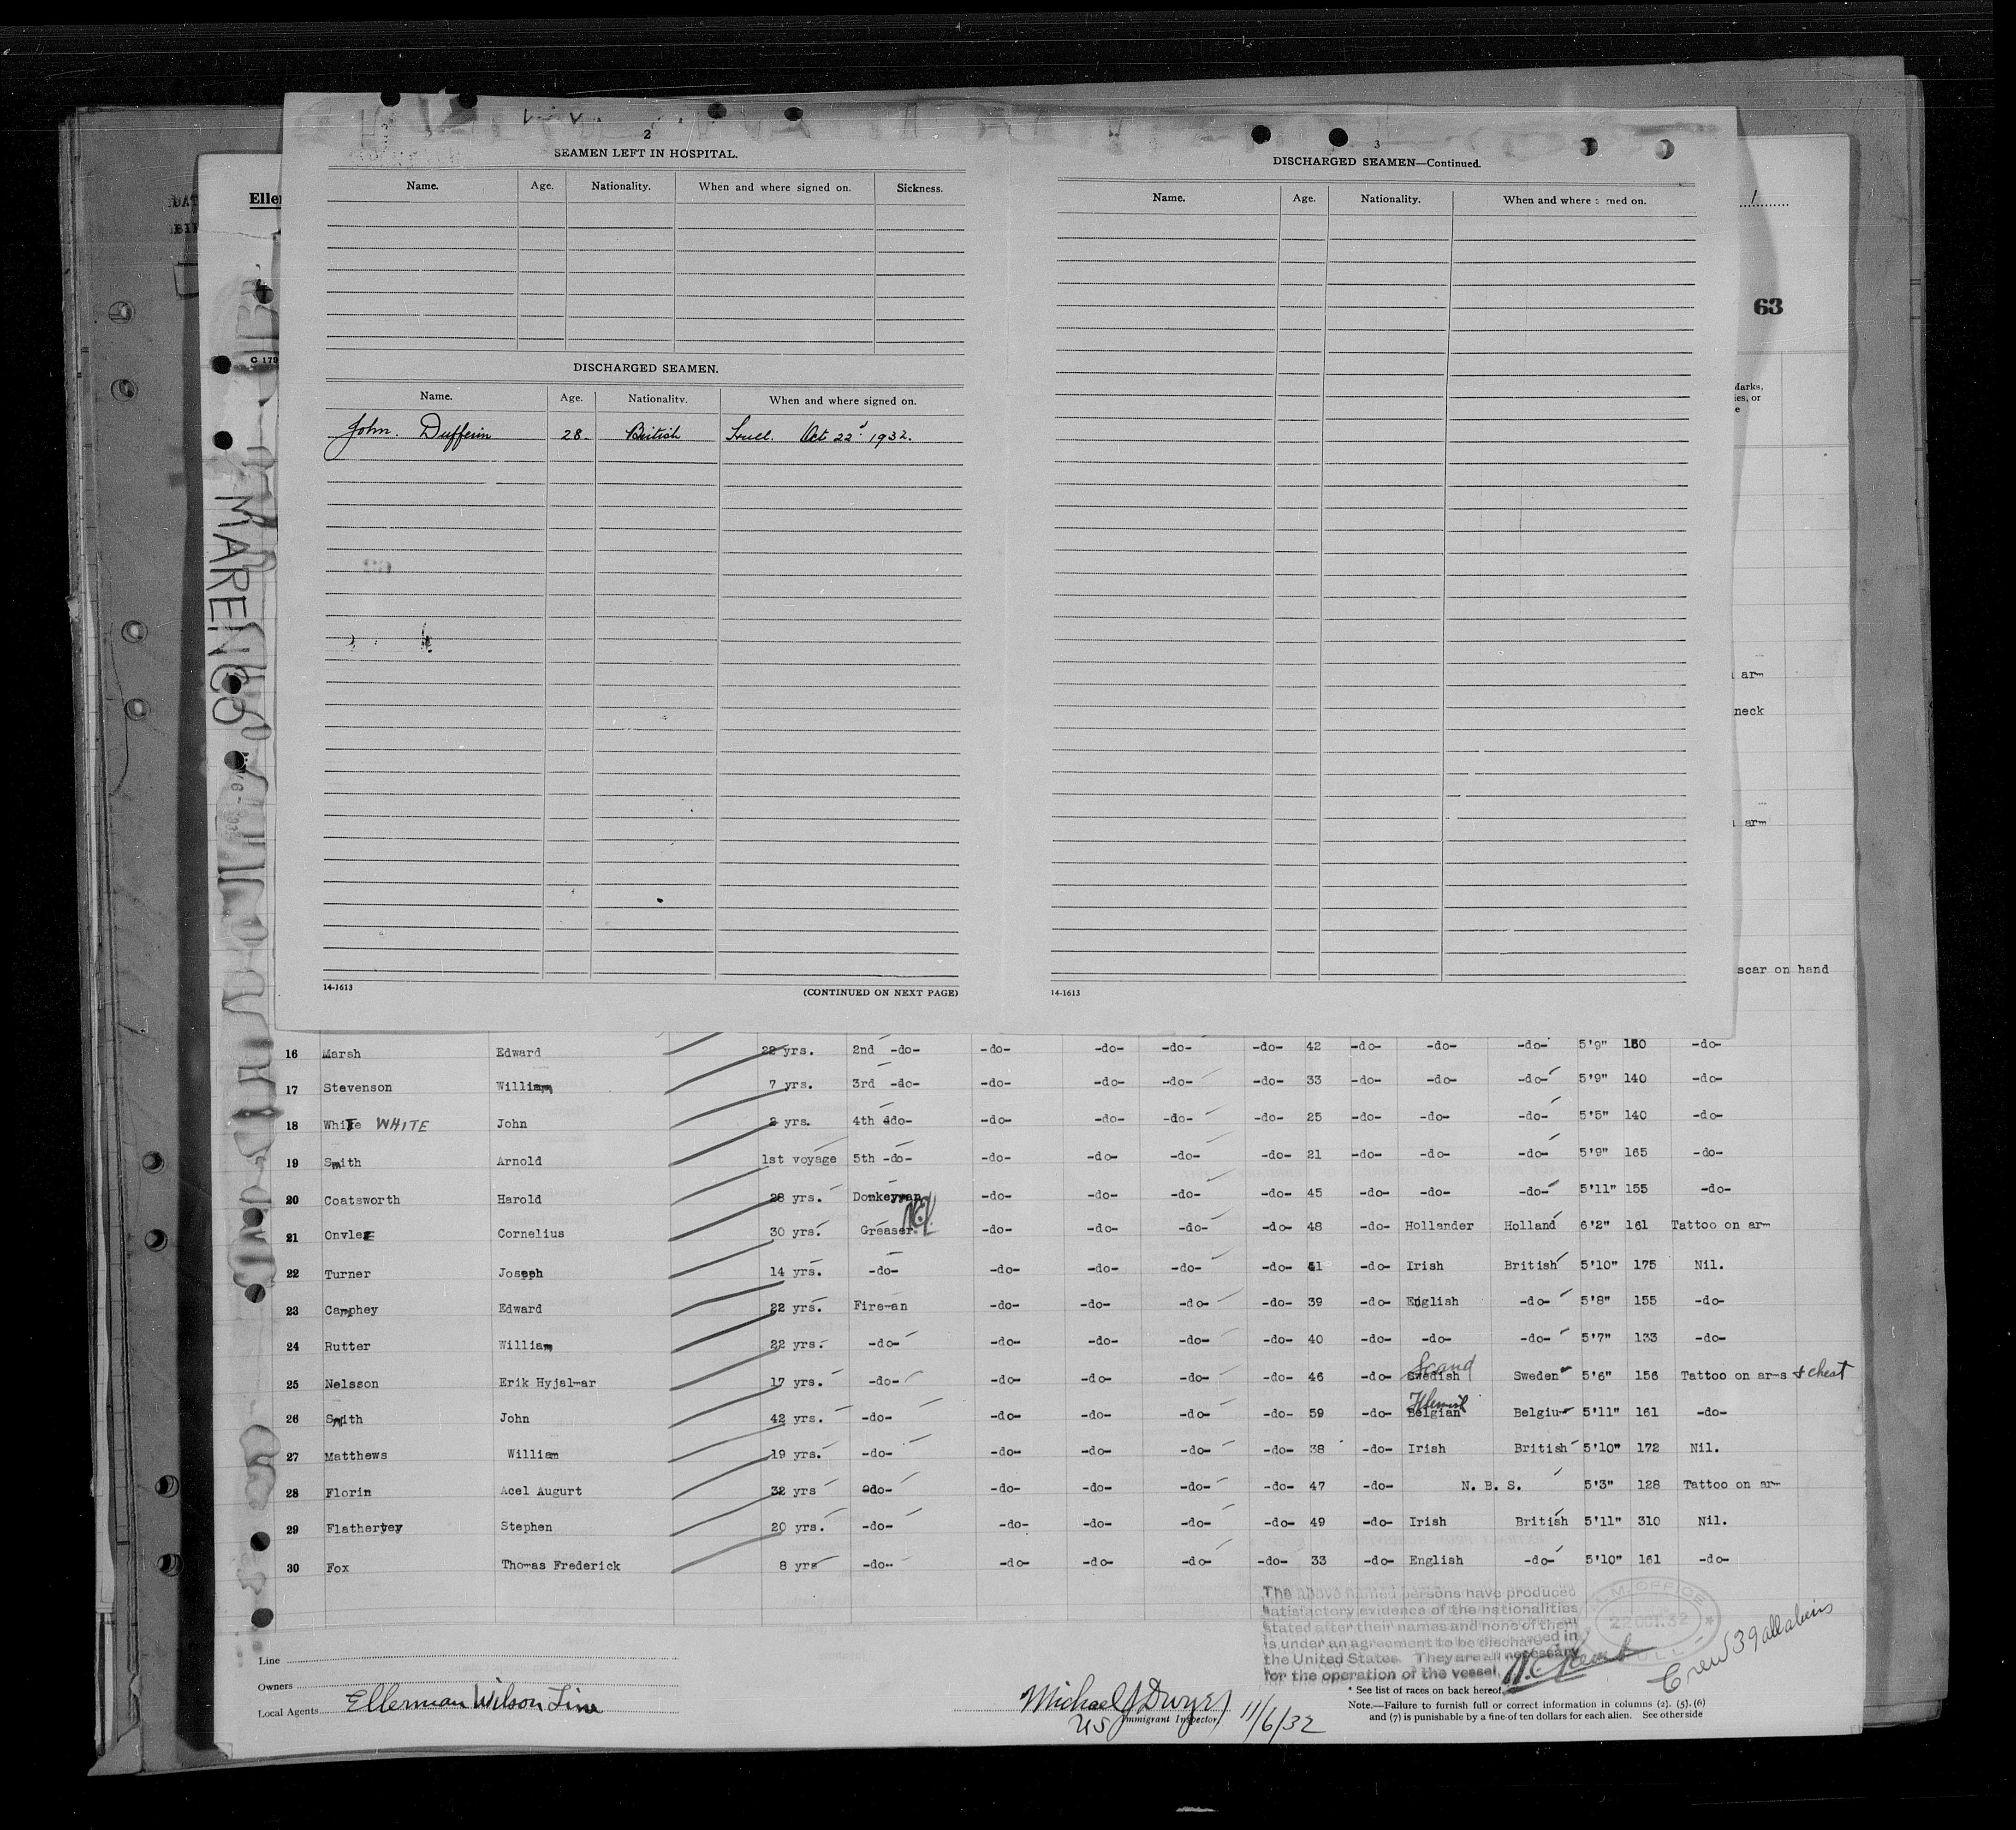 2
SEAMEN LEFT IN HOSPITAL.
Name. Age. Nationality. When and where signed on. Sickness.
DISCHARGED SEAMEN.
Name. Age. Nationality. When and where signed on.
John. Dufferin 28. British Oct 22d. 1932.
14-1613
(CONTINUED ON NEXT PAGE)
3
DISCHARGED SEAMEN—Continued.
Name. Age. Nationality. When and where med on.
14-1613
DAT
Eller
C 179
MARENGO
1
63
Marks,
ies, or
e
arm
neck
arm
scar on hand
16 Marsh Edward 22 yrs. 2nd -do- -do- -do- -do- -do- 42 -do- -do- -do- 5'9" 150 -do-
17 Stevenson William 7 yrs. 3rd -do- -do- -do- -do- -do- 33 -do- -do- -do- 5'9" 140 -do-
18 White WHITE John 2 yrs. 4th ddo- -do- -do- -do- -do- 25 -do- -do- -do- 5'5" 140 -do-
19 Smith Arnold 1st voyage 5th -do- -do- -do- -do- -do- 21 -do- -do- -do- 5'9" 165 -do-
20 Coatsworth Harold 28 yrs. Donkeyman -do- -do- -do- -do- 45 -do- -do- -do- 5'11" 155 -do-
21 Onvlee Cornelius 30 yrs. Greaser. -do- -do- -do- -do- 48 -do- Hollander Holland 6'2" 161 Tattoo on arm
22 Turner Joseph 14 yrs. -do- -do- -do- -do- -do- 51 -do- Irish British 5'10" 175 Nil.
23 Camphey Edward 22 yrs. Fireman -do- -do- -do- -do- 39 -do- English -do- 5'8" 155 -do-
24 Rutter William 22 yrs. -do- -do- -do- -do- -do- 40 -do- -do- -do- 5'7" 133 -do-
25 Nelsson Erik Hyjalmar 17 yrs. -do- -do- -do- -do- -do- 46 -do- Scand Swedish Sweden 5'6" 156 Tattoo on arms & chest
26 Smith John 42 yrs. -do- -do- -do- -do- -do- 59 -do- Flemish Belgian Belgium 5'11" 161 -do-
27 Matthews William 19 yrs. -do- -do- -do- -do- -do- 38 -do- Irish British 5'10" 172 Nil.
28 Florin Acel Augurt 32 yrs -do- -do- -do- -do- -do- 47 -do- N. B. S. 5'3" 128 Tattoo on arm
29 Flathertey Stephen 20 yrs. -do- -do- -do- -do- -do- 49 -do- Irish British 5'11" 310 Nil.
30 Fox Thomas Frederick 8 yrs -do- -do- -do- -do- -do- 33 -do- English -do- 5'10" 161 -do-
The above named persons have produced
satisfactory evidence of the nationalities
stated after their names and none of them
is under an agreement to be discharged in
the United States. They are all necessary
for the operation of the vessel.
M. M. OFFICE
22 OCT. 32
HULL
Crew 39 all aliens
Line
Owners
Local Agents Ellerman Wilson Line
Michael J Dwyer
US Immigrant Inspector. 11/6/32
* See list of races on back hereof.
Note.—Failure to furnish full or correct information in columns (2), (5), (6)
and (7) is punishable by a fine of ten dollars for each alien. See other side